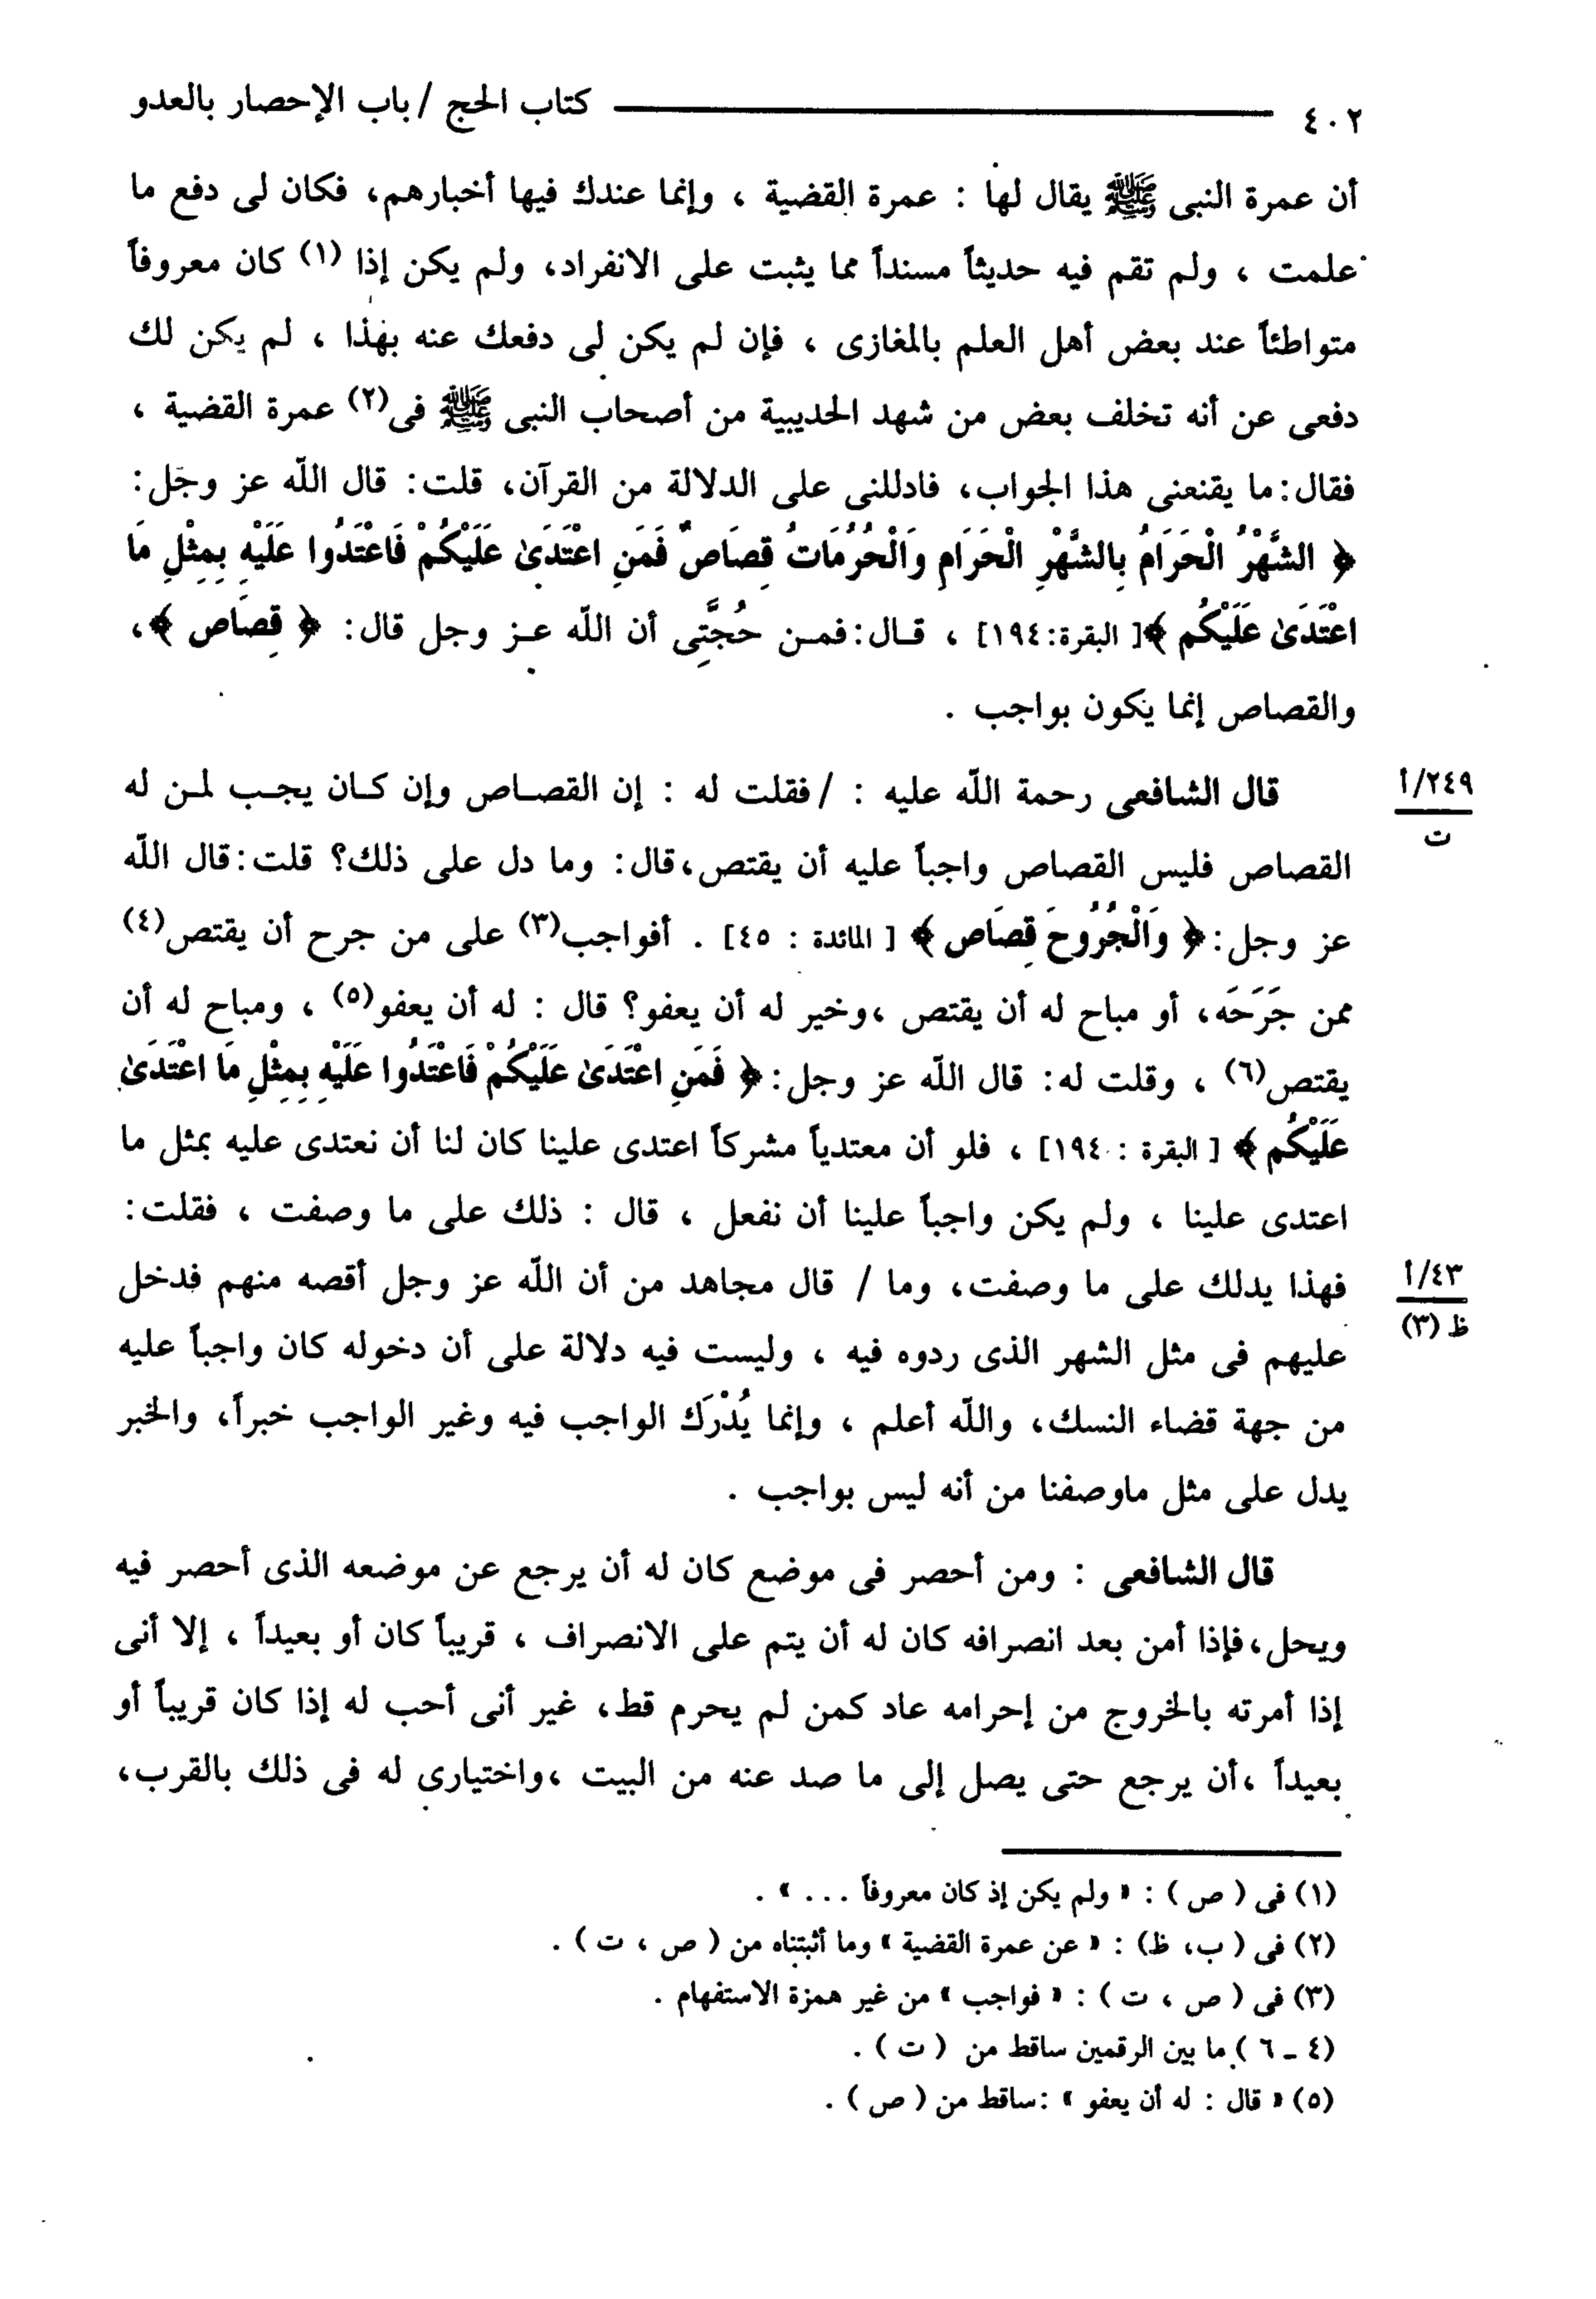 ٤٠٢ كتاب الحج / باب الإحصار بالعدو
أن عمرة النبى ﷺ يقال لها : عمرة القضية ، وإنما عندك فيها أخبارهم، فكان لى دفع ما
علمت ، ولم تقم فيه حديثاً مسنداً مما يثبت على الانفراد، ولم يكن إذا (١) كان معروفاً
متواطئاً عند بعض أهل العلم بالمغازى ، فإن لم يكن لى دفعك عنه بهذا ، لم يكن لك
دفعى عن أنه تخلف بعض من شهد الحديبية من أصحاب النبى ﷺ فى(٢) عمرة القضية ،
فقال: ما يقنعنى هذا الجواب، فادللنى على الدلالة من القرآن، قلت: قال الله عز وجل:
﴿ الشَّهْرُ الْحَرَامُ بِالشَّهْرِ الْحَرَامِ وَالْحُرُمَاتُ قِصَاصٌ فَمَنِ اعْتَدَىٰ عَلَيْكُمْ فَاعْتَدُوا عَلَيْهِ بِمِثْلِ مَا
اعْتَدَىٰ عَلَيْكُم ﴾[ البقرة:١٩٤] ، قـال: فمـن حُجَّتِى أن الله عـز وجل قال: ﴿ قِصَاص ﴾،
والقصاص إنما يكون بواجب .
٢٤٩/أ
ت
قال الشافعى رحمة الله عليه : / فقلت له : إن القصـاص وإن كـان يجـب لمـن له
القصاص فليس القصاص واجباً عليه أن يقتص، قال: وما دل على ذلك؟ قلت: قال الله
عز وجل: ﴿ وَالْجُرُوحَ قِصَاص ﴾ [ المائدة : ٤٥] . أفواجب(٣) على من جرح أن يقتص(٤)
ممن جَرَحَه، أو مباح له أن يقتص ،وخير له أن يعفو؟ قال : له أن يعفو(٥) ، ومباح له أن
يقتص(٦) ، وقلت له: قال الله عز وجل: ﴿ فَمَنِ اعْتَدَىٰ عَلَيْكُمْ فَاعْتَدُوا عَلَيْهِ بِمِثْلِ مَا اعْتَدَىٰ
عَلَيْكُم ﴾ [ البقرة : ١٩٤] ، فلو أن معتدياً مشركاً اعتدى علينا كان لنا أن نعتدى عليه بمثل ما
اعتدى علينا ، ولم يكن واجباً علينا أن نفعل ، قال : ذلك على ما وصفت ، فقلت:
٤٣/أ
ظ (٣)
فهذا يدلك على ما وصفت، وما / قال مجاهد من أن الله عز وجل أقصه منهم فدخل
عليهم فى مثل الشهر الذى ردوه فيه ، وليست فيه دلالة على أن دخوله كان واجباً عليه
من جهة قضاء النسك، والله أعلم ، وإنما يُدْرَك الواجب فيه وغير الواجب خبراً، والخبر
يدل على مثل ماوصفنا من أنه ليس بواجب .
قال الشافعى : ومن أحصر فى موضع كان له أن يرجع عن موضعه الذى أحصر فيه
ويحل، فإذا أمن بعد انصرافه كان له أن يتم على الانصراف ، قريباً كان أو بعيداً ، إلا أنى
إذا أمرته بالخروج من إحرامه عاد كمن لم يحرم قط، غير أنى أحب له إذا كان قريباً أو
بعيداً ،أن يرجع حتى يصل إلى ما صد عنه من البيت ،واختيارى له فى ذلك بالقرب،
(١) فى ( ص ) : « ولم يكن إذ كان معروفاً . . . » .
(٢) فى ( ب، ظ) : « عن عمرة القضية » وما أثبتناه من ( ص ، ت ) .
(٣) فى ( ص ، ت ) : « فواجب » من غير همزة الاستفهام .
(٤ ـ ٦ ) ما بين الرقمين ساقط من ( ت ) .
(٥) « قال : له أن يعفو » : ساقط من ( ص ) .